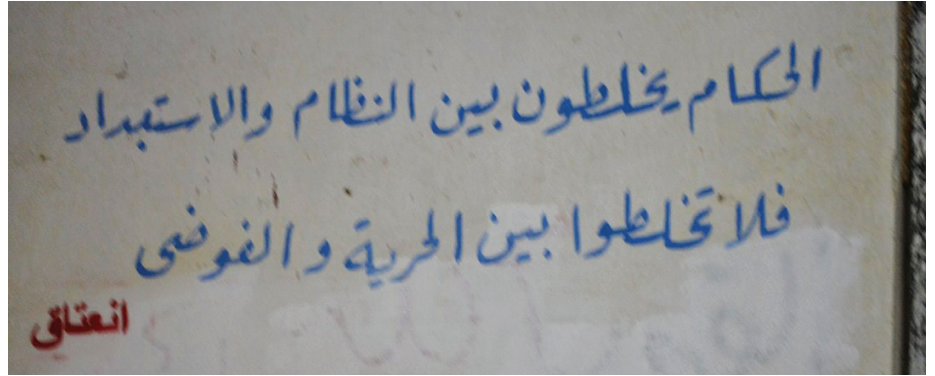 الحكام يخلطون بين النظام والاستبداد
فلا تخلطوا بين الحرية والفوضى
انعتاق